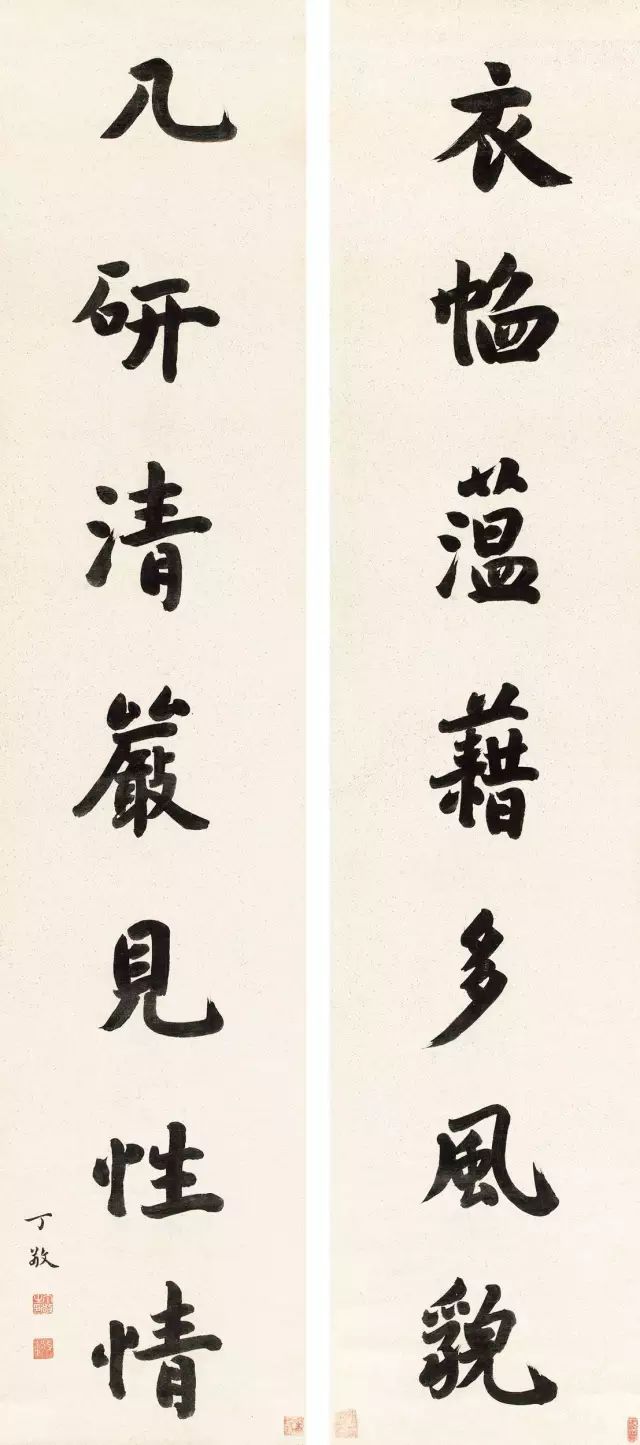 衣蕰藉多風貌
几研清嚴見性情
丁敬